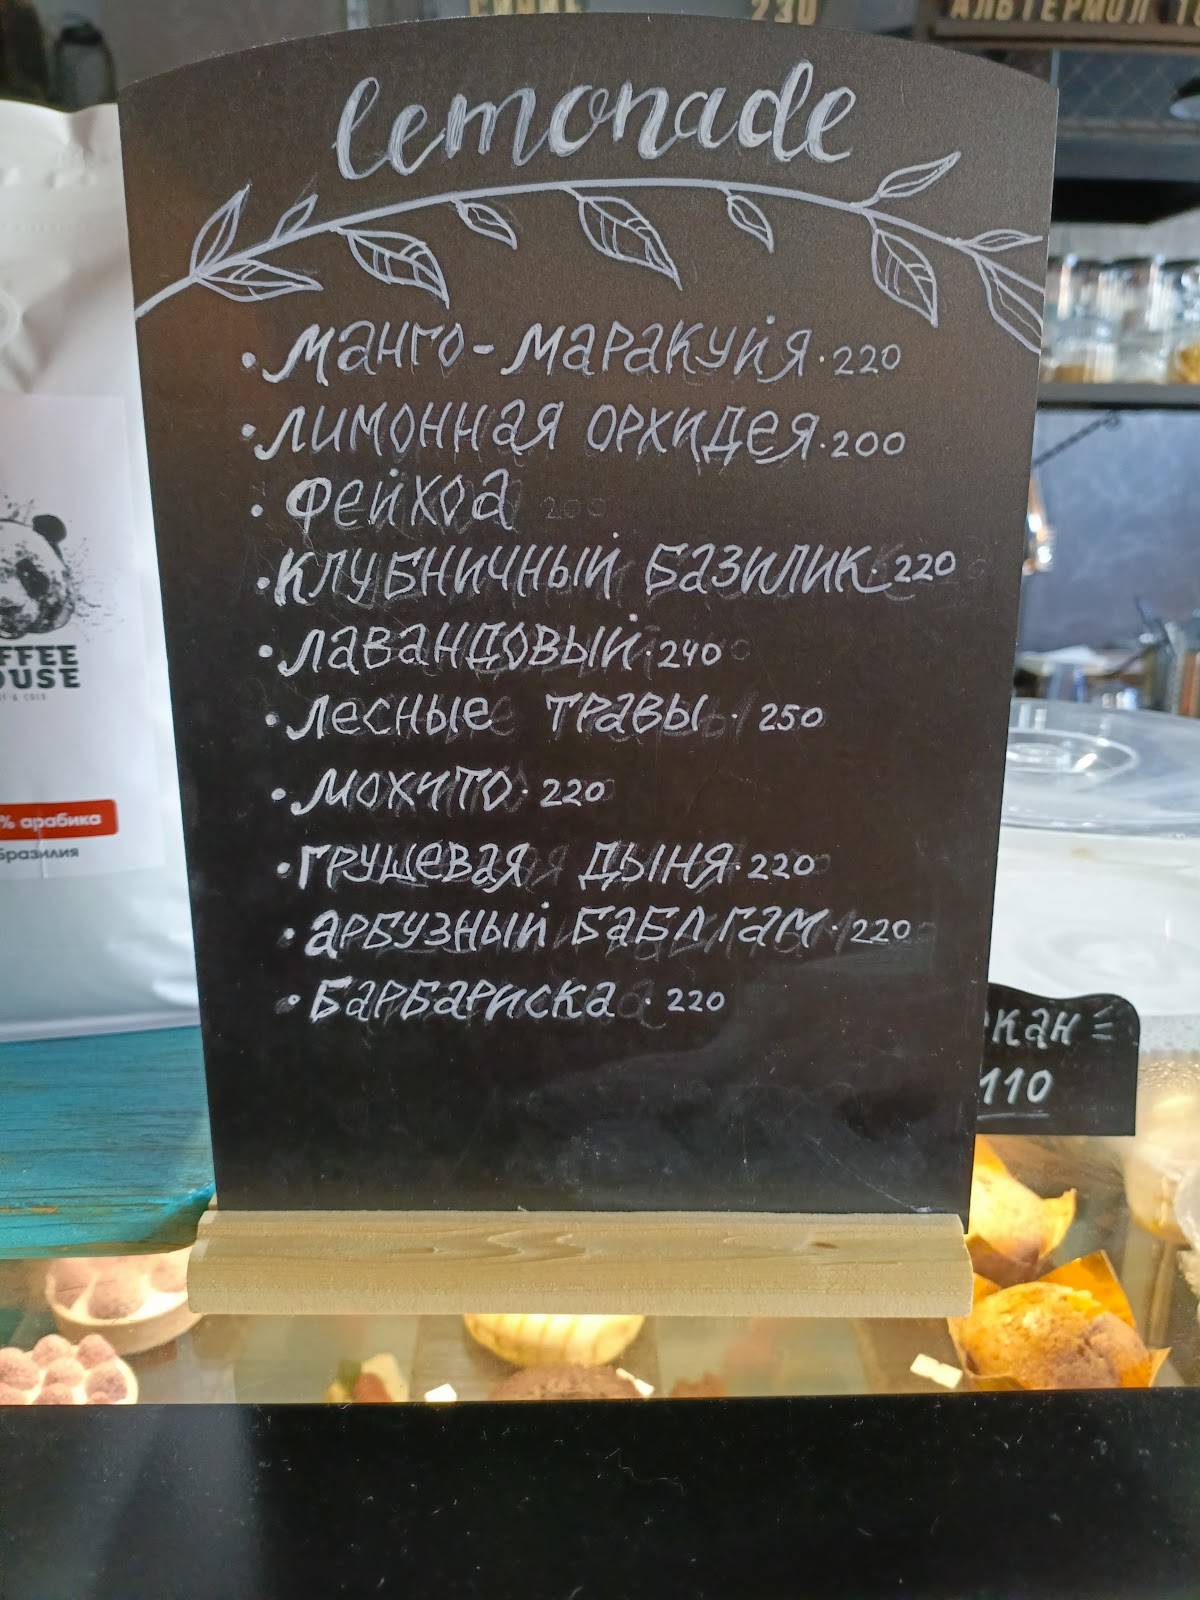 230
lemonade
• манго-маракуйя · 220
• лимонная орхидея · 200
• фейхоа 200
• клубничный базилик · 220
• лавандовый · 240
• лесные травы · 250
• мохито · 220
• грушевая дыня · 220
• арбузный бабл гам · 220
• барбариска · 220
FFEE
OUSE
% арабика
бразилия
кан
110